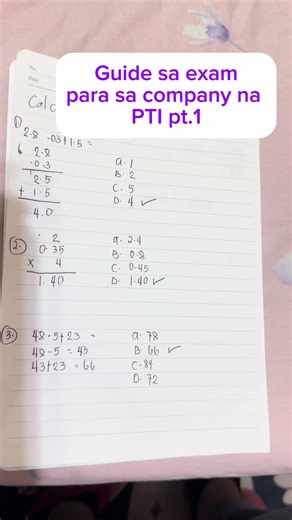 Guide sa exam
para sa company na
PTI pt.1
No.
Date
Calc
1.
2.8 -03+1.5 =
2.8
-0.3
2.5
+ 1.5
4.0
a. 1
B. 2
C. 5
D. 4 ✓
2.
2
0.35
x 4
1.40
a. 2.4
B. 0.8
C. 0.45
D. 1.40 ✓
3.
48-5+23 =
48-5 = 43
43+23 = 66
a. 78
B. 66 ✓
C. 84
D. 72